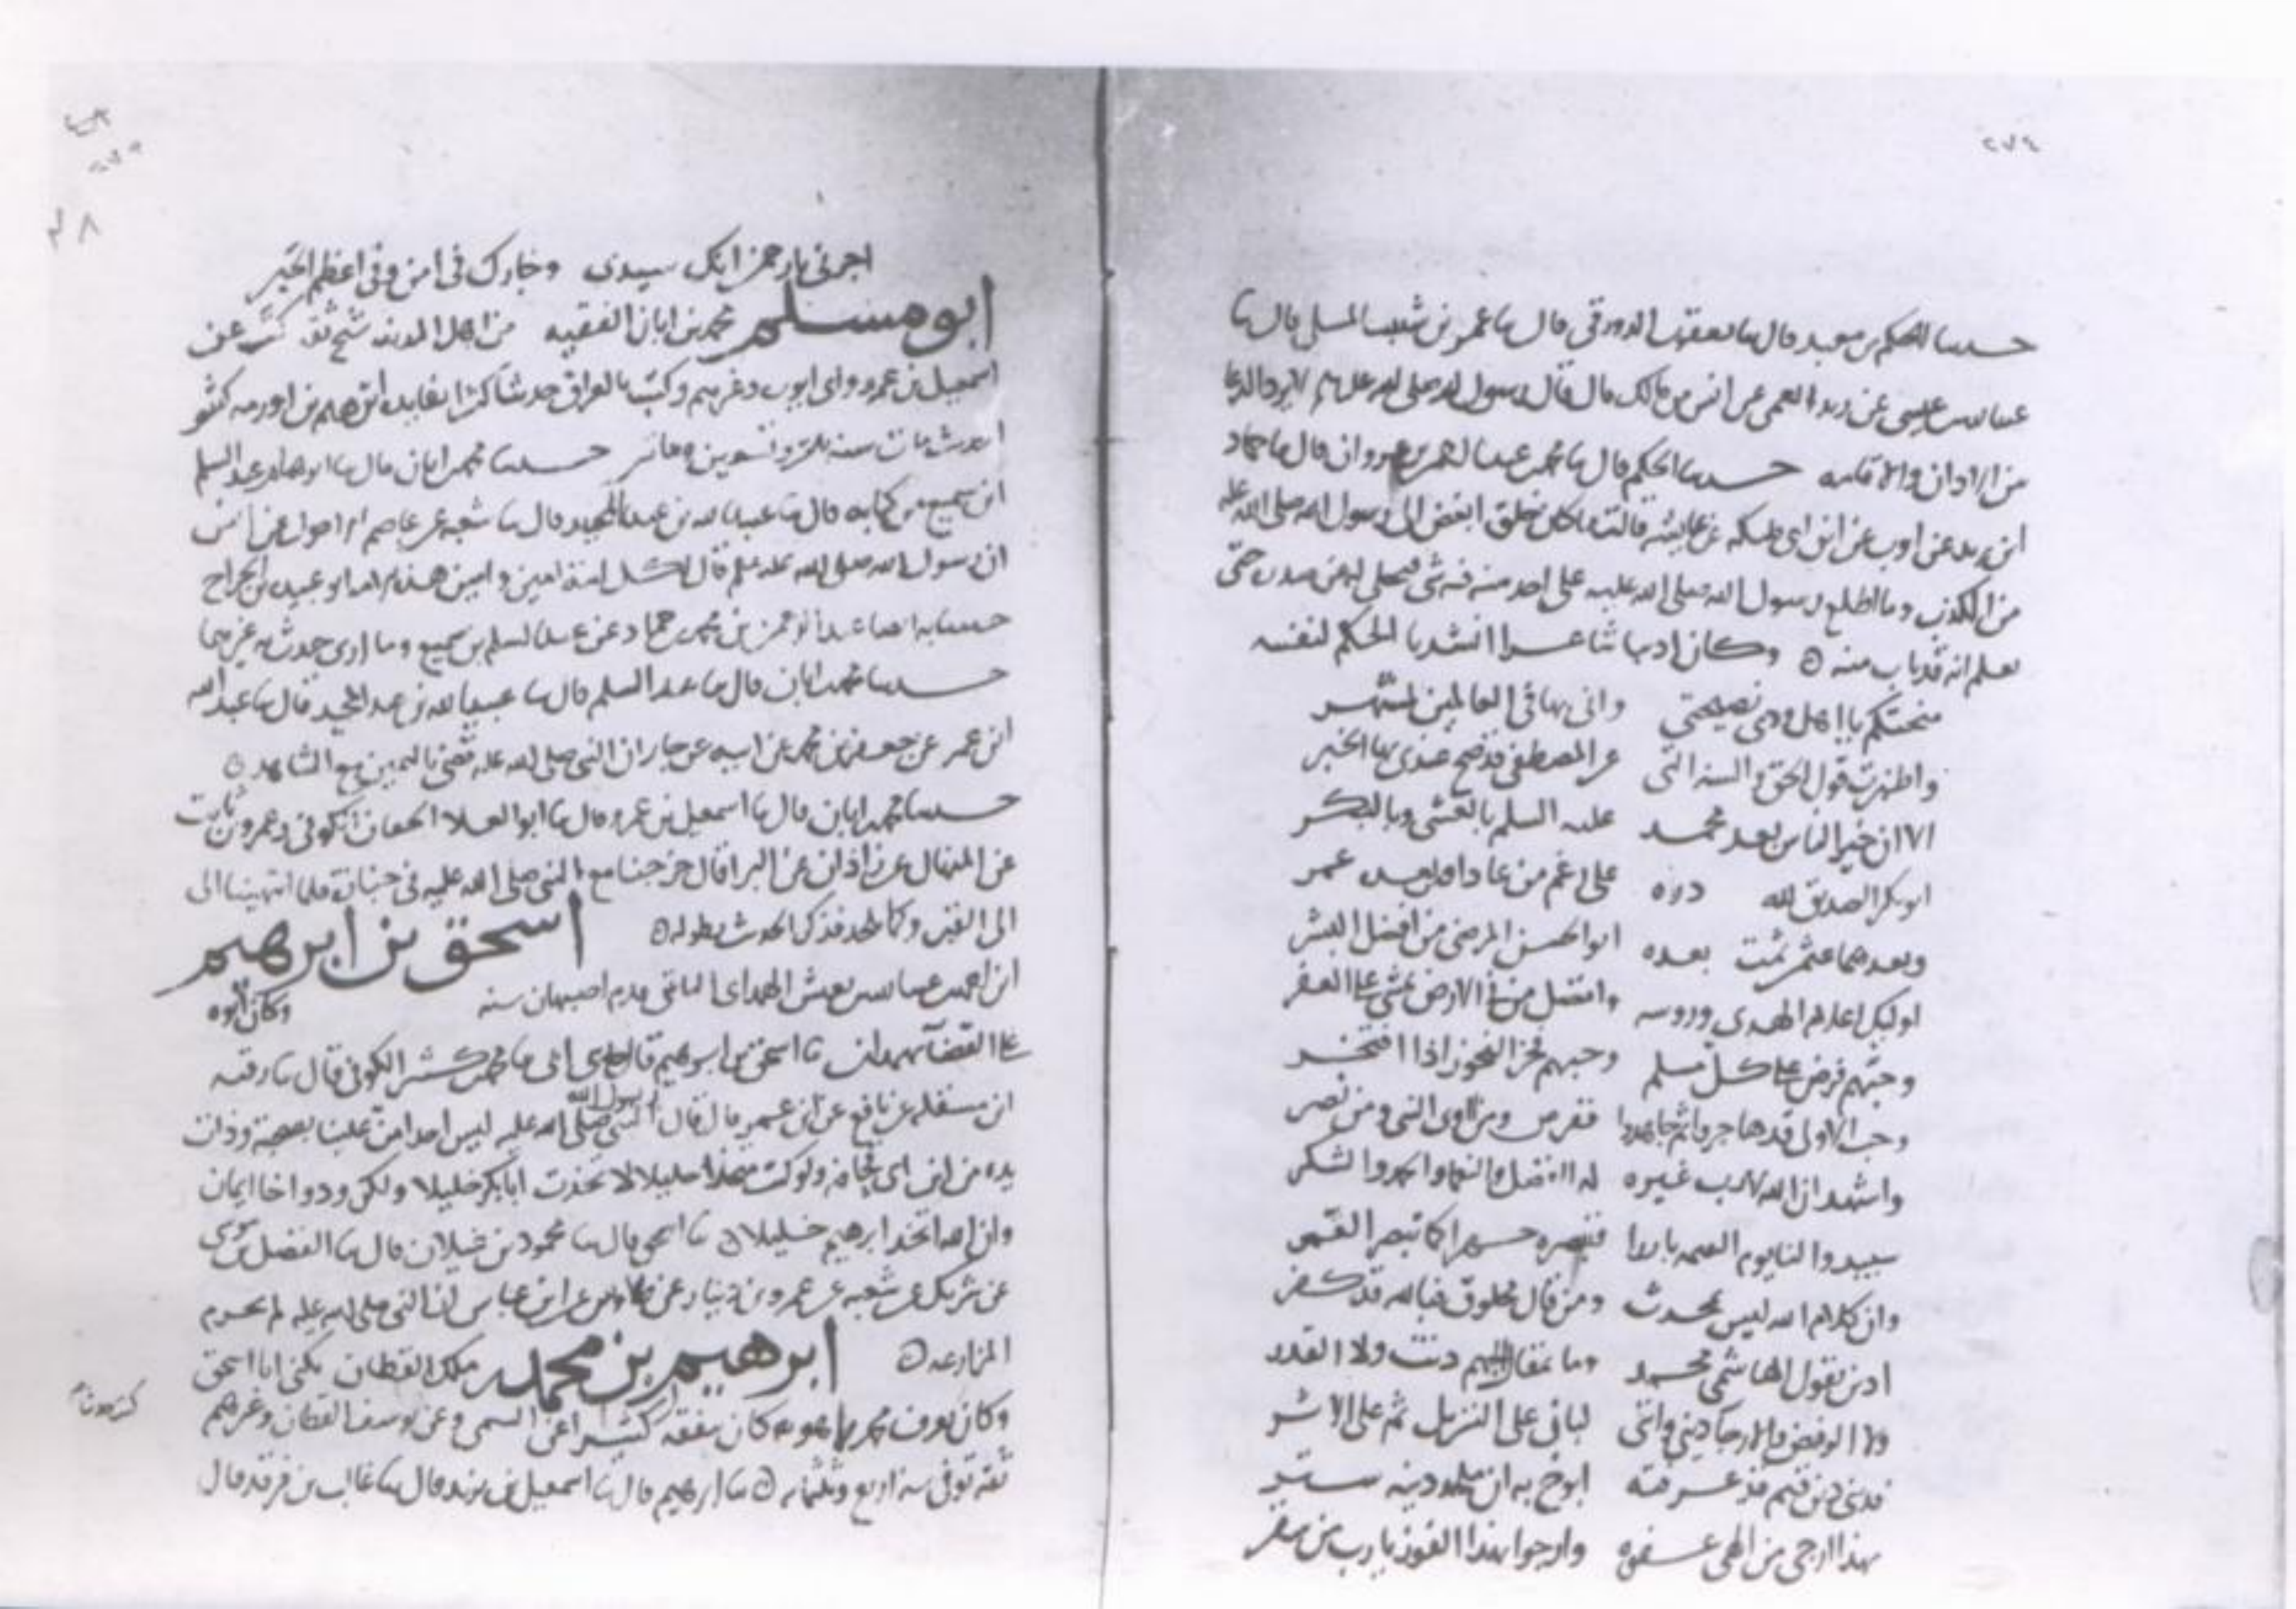 ٢٧٤
حدثنا الحكم بن معبد قال ثنا يعقوب الدورقي قال ثنا عمر بن شبيب المسلي قال ثنا
عبد الله بن عيسى عن زيد العمي عن انس بن مالك قال قال رسول الله صلى الله عليه لا يرد الدعا
من الاذان والاقامه حدثنا الحكم قال ثنا محمد بن عبد الرحمن قال ثنا حماد
ابن زيد عن ايوب عن ابن ابي مليكه عن عايشه قالت ما كان خلق ابغض الى رسول الله صلى الله عليه
من الكذب وما اطلع رسول الله صلى الله عليه على احد منه في شي فيتجلى له من صدره حتى
يعلم انه قد تاب منه ه وكان اديبا شاعرا انشدنا الحكم لنفسه
منحتكم يا اهل ودي نصيحتي واني بها في العالمين لمشتهر
واظهرت قول الحق والسنه التي عن المصطفى قد صح عندي بها الخبر
الا ان خير الناس بعد محمد عليه السلم بالعشي وبالبكر
ابو بكر الصديق لله دره على رغم من عادا ومن بعده عمر
وبعدهما عثمن ثمت بعده ابو الحسن المرضي من افضل البشر
اوليك اعلام الهدى وروسه وافضل من في الارض يمشي على العفر
وحبهم فرض على كل مسلم وحبهم فخر الفخور اذا افتخر
وحب الاولى قد هاجروا ثم جاهدوا ففرض ومن اوى النبي ومن نصر
واشهد ان الله لا رب غيره له الفضل والنعما والحمد والشكر
سيبدو لنا يوم القيمه بارزا فنبصره جهرا كما نبصر القمر
وان كلام الله ليس بمحدث ومن قال مخلوق فبالله قد كفر
ادين بقول الهاشمي محمد وما بمقال الجهم دنت ولا القدر
ولا الرفض والارجا ديني وانني لباني على التنزيل ثم على الاثر
فديني دين قيم قد عرفته ابوح به ان ملحد دينه ستر
بهذا ارجي من الهي عفوه وارجوا بهذا الفوز يا رب من سقر
اجرني يا رحمن انك سيدي وجارك في امن وفي اعظم الخير
ابو مسلم محمد بن ابان الفقيه من اهل المدينه شيخ ثقه كتب عن
اسمعيل بن عمرو وابي ايوب وغيرهم وكتب بالعراق حديثا كثيرا بفايده ابرهيم بن اورمه كثير
الحديث مات سنه ثلث وتسعين وماتين حدثنا محمد بن ابان قال ثنا ابو عبد السلم
ابن سميع من كتابه قال ثنا عبيد الله بن عبد المجيد قال ثنا شعبه عن عاصم الاحول عن انس
ان رسول الله صلى الله عليه وسلم قال لكل امة امين وامين هذه الامه ابو عبيده بن الجراح
حدثنا به ايضا عبد الرحمن بن محمد بن حماد عن عبد السلم بن سميع وما ارى حدث به غيرهما
حدثنا محمد بن ابان قال ثنا عبد السلم قال ثنا عبيد الله بن عبد المجيد قال ثنا عبد الله
ابن عمر عن جعفر بن محمد عن ابيه عن جابر ان النبي صلى الله عليه قضى باليمين مع الشاهد ه
حدثنا محمد بن ابان قال ثنا اسمعيل بن عمرو قال ثنا ابو العلا الخفاف الكوفي وعمرو بن ثابت
عن المنهال عن زاذان عن البرا قال خرجنا مع النبي صلى الله عليه في جنازة فلما انتهينا الى
الى القبر وكما يلحد فذكر الحديث بطوله ه اسحق بن ابرهيم
ابن احمد بن عبد الله بن يعيش الهمداني قدم اصبهان سنه وكان ابوه
على القضا بهمدان ثنا اسحق بن ابرهيم قال حدثني ابي ثنا محمد بن كثير الكوفي قال ثنا رقبه
ابن مصقله عن نافع عن ابن عمر قال قال رسول الله النبي صلى الله عليه ليس احد امن علينا بصحبة وذات
يده من ابن ابي قحافه ولو كنت متخذا خليلا لاتخذت ابا بكر خليلا ولكن ود واخا ايمان
وان الله اتخذ ابرهيم خليلا ه ثنا اسحق قال ثنا محمود بن غيلان قال ثنا الفضل بن موسى
عن شريك عن شعبه عن عمرو بن دينار عن طاوس عن ابن عباس ان النبي صلى الله عليه لم يحرم
المزارعه ه ابرهيم بن محمد بن ملك القطان يكنى ابا اسحق
وكان يعرف كان يتفقه كثيرا عن السمي وعن يوسف القطان وغيرهم
ثقه توفي سنه اربع وثلثمايه ه ثنا ابرهيم قال ثنا اسمعيل بن يزيد قال ثنا غالب بن فرقد قال